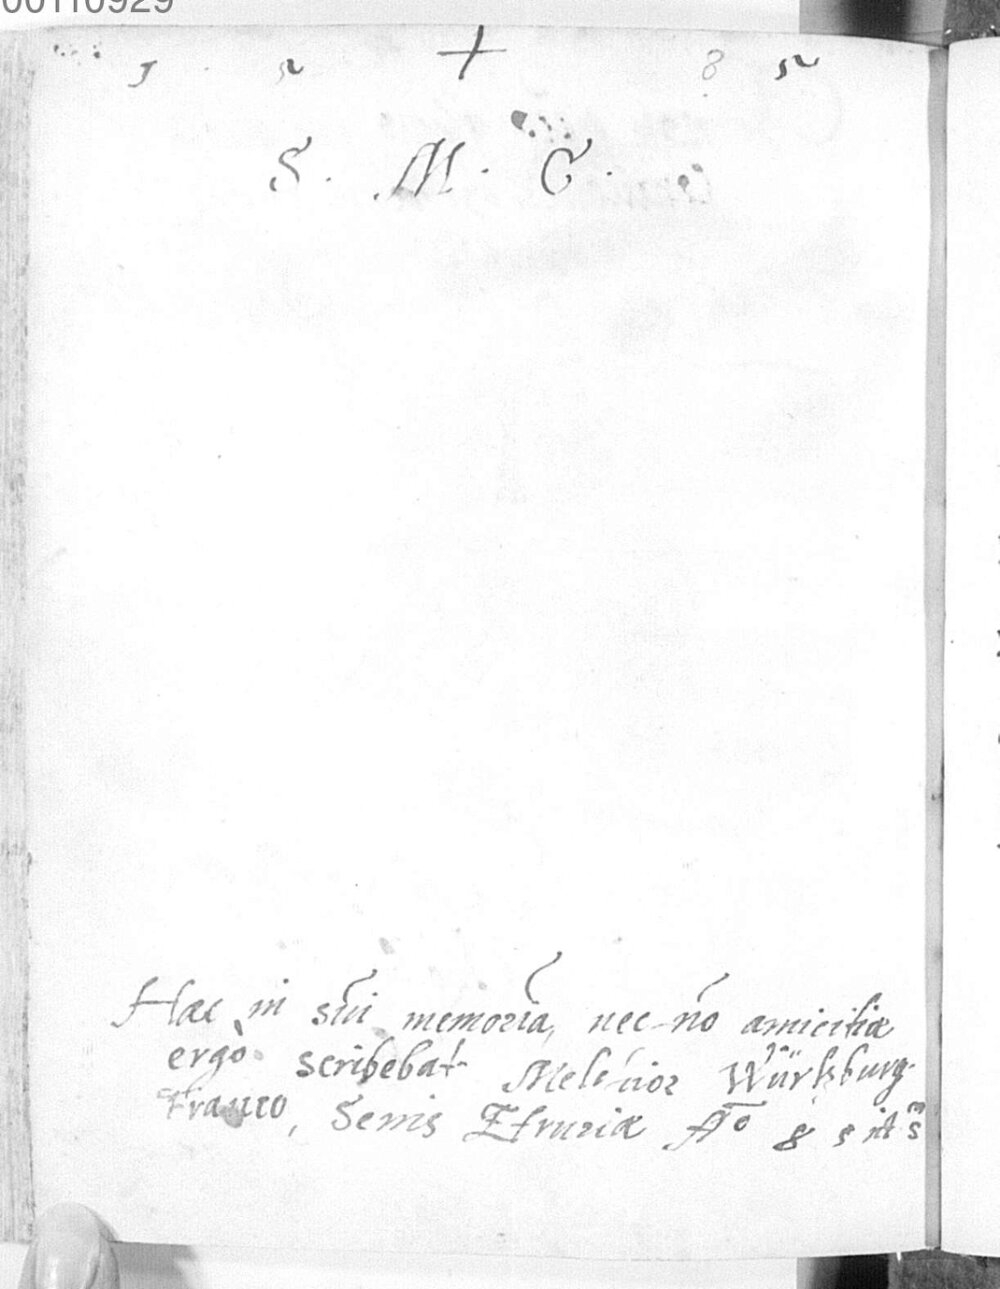 00110929
1 5 + 8 5
S. M. C.
Hæc in sui memoria, nec nō amicitiæ
ergò scribebat Melchior Würtzburg.
Franco, Senis Etruriæ Aº 85